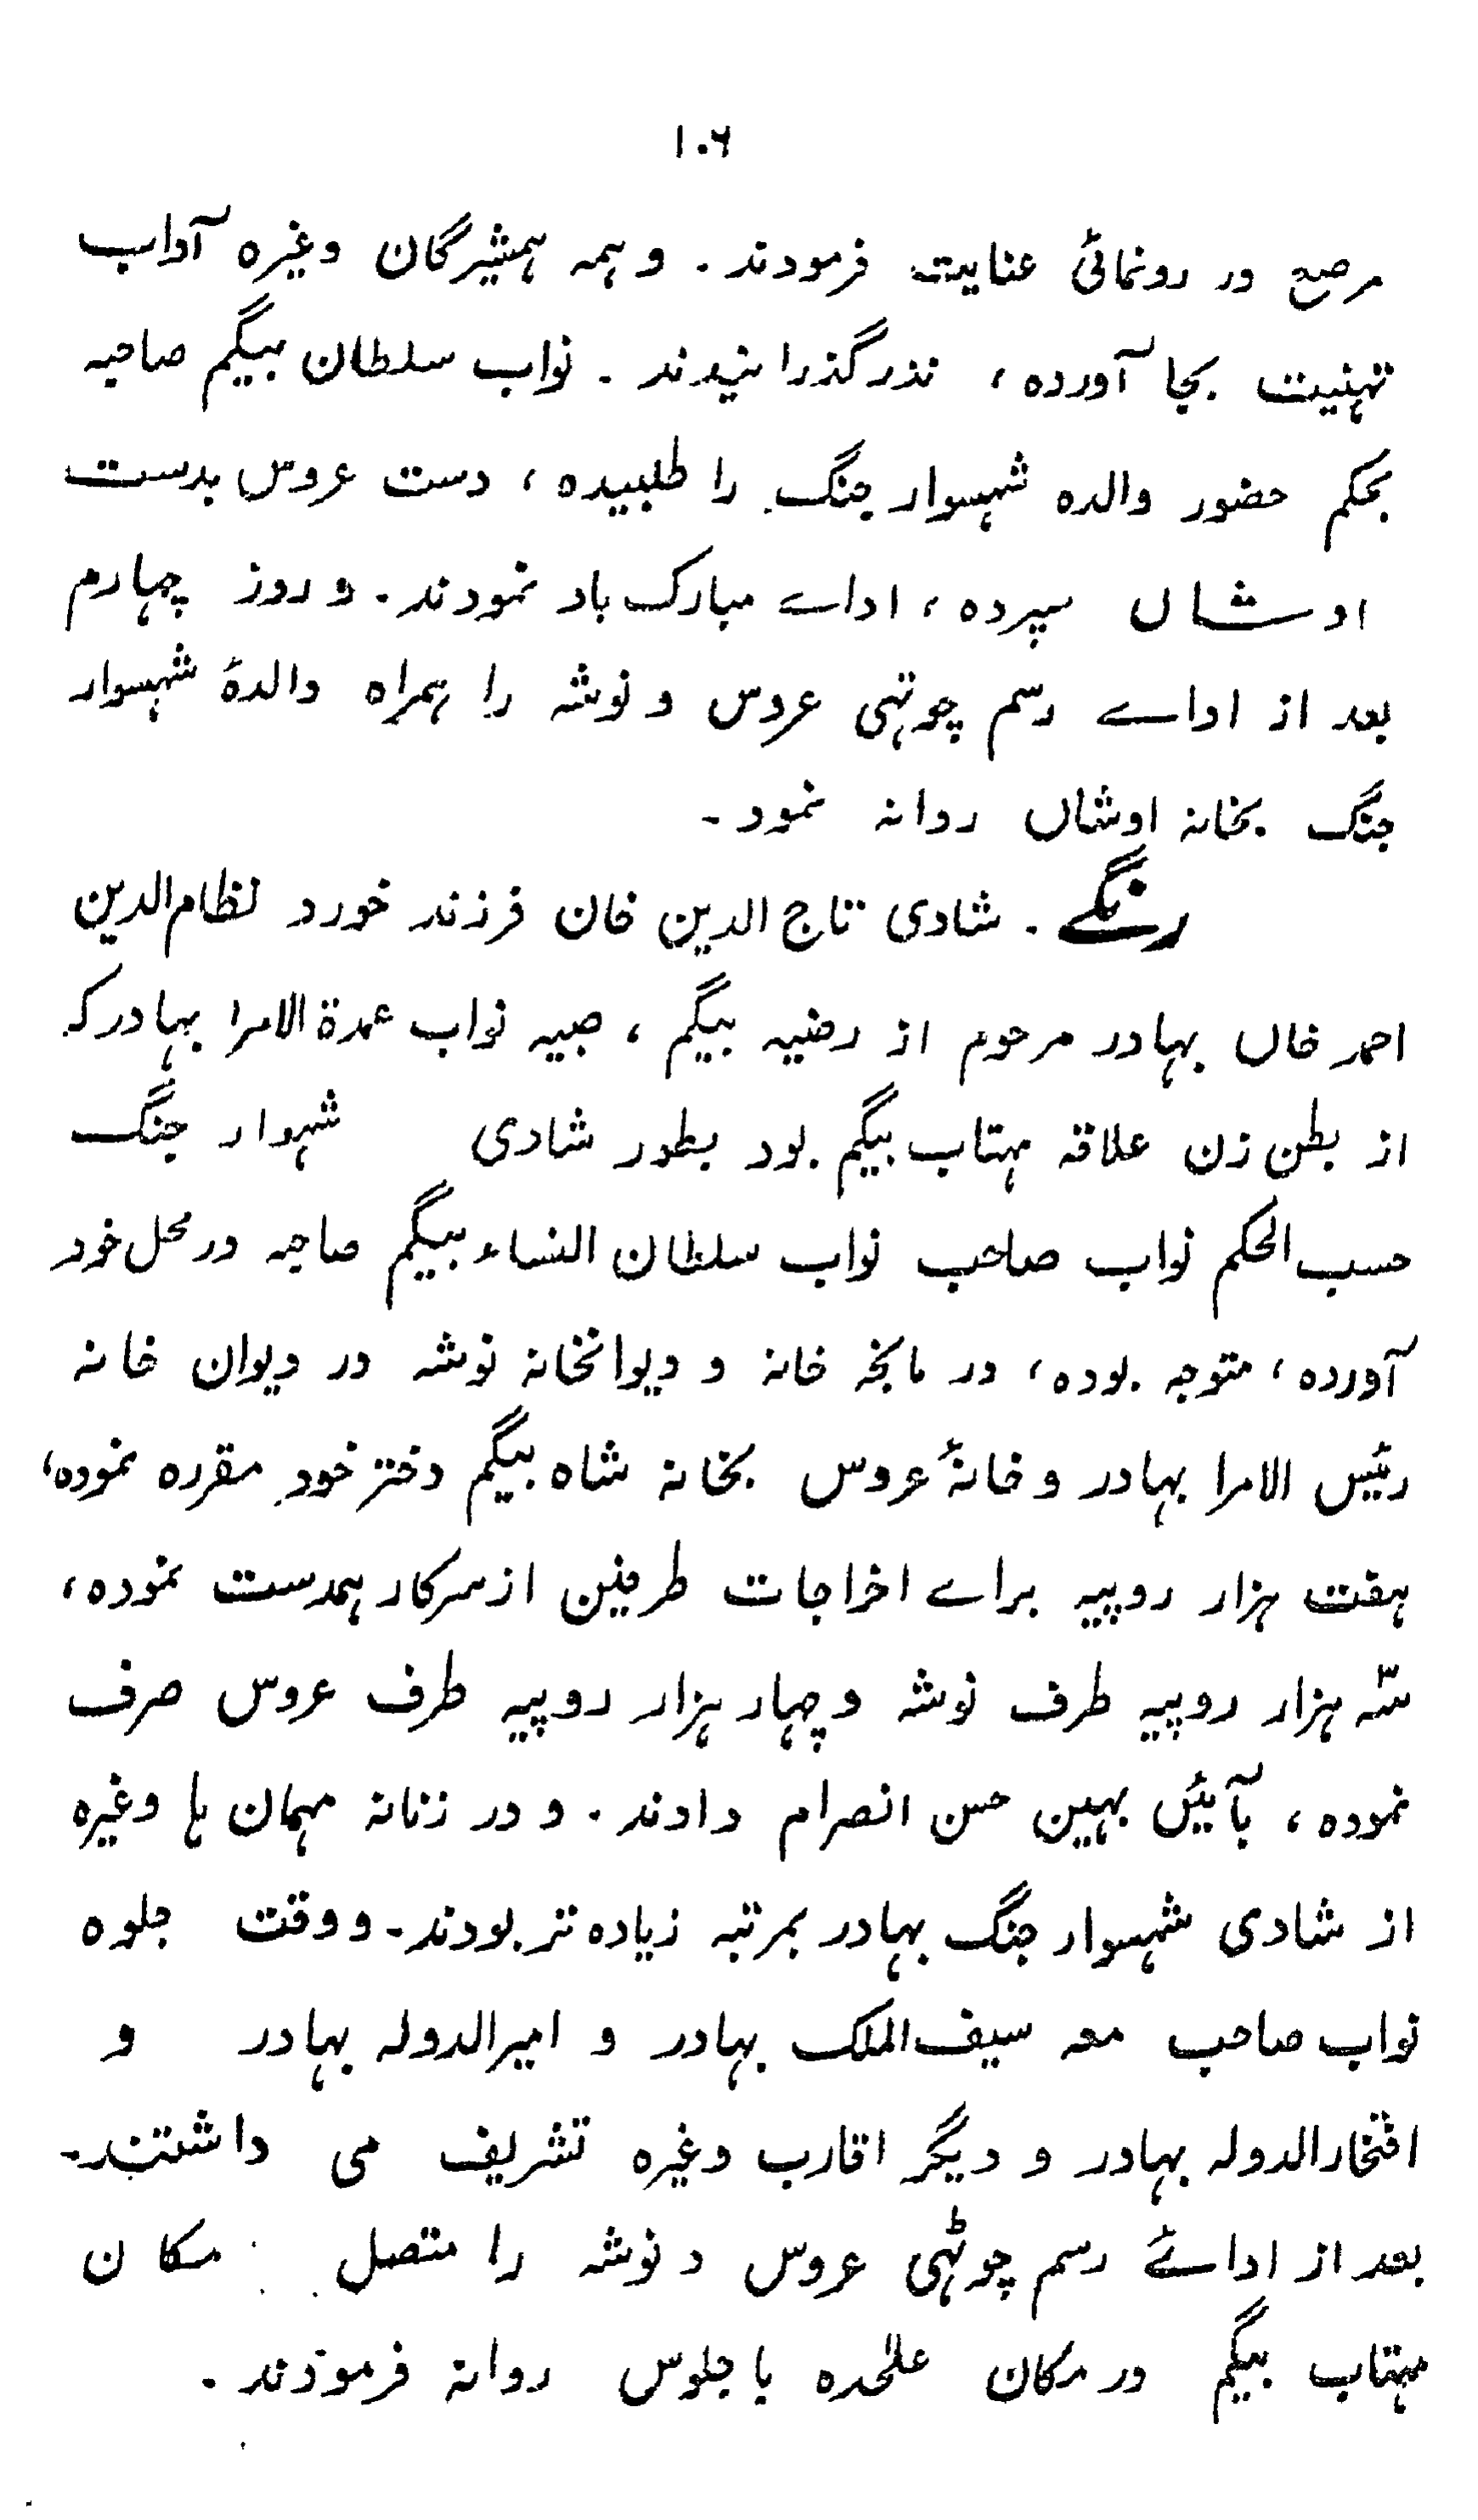 ۱۰۶
مرصع در رونمائی عنایت فرمودند. و ہمہ ہمشیرگان وغیرہ آداب
تہنیت بجا آوردہ، نذر گذرانیدند۔ نواب سلطان بیگم صاحبہ
بحکم حضور والدہ شہسوار جنگ را طلبیدہ، دست عروس بدست
اوشاں سپردہ، اداے مبارک باد نمودند۔ و روز چہارم
بعد از اداے رسم چوتہی عروس و نوشہ را ہمراہ والدۂ شہسوار
جنگ بخانہ اوشاں روانہ نمود۔
رنگے۔ شادی تاج الدین خان فرزند خورد نظام الدین
احمد خاں بہادر مرحوم از رضیہ بیگم، صبیہ نواب عمدۃ الامرا بہادر کہ
از بطن زن علاقہ مہتاب بیگم بود بطور شادی شہسوار جنگ
حسب الحکم نواب صاحب نواب سلطان النساء بیگم صاحبہ در محل خود
آوردہ، متوجہ بودہ، در مانجہ خانہ و دیوانخانہ نوشہ در دیوان خانہ
رئیس الامرا بہادر و خانۂ عروس بخانہ شاہ بیگم دختر خود مقررہ نمودہ،
ہفت ہزار روپیہ براے اخراجات طرفین از سرکار ہمدست نمودہ،
سہ ہزار روپیہ طرف نوشہ و چہار ہزار روپیہ طرف عروس صرف
نمودہ، بآئیں بہین حسن انصرام دادند۔ و در زنانہ مہمان ہا وغیرہ
از شادی شہسوار جنگ بہادر بمرتبہ زیادہ تر بودند۔ و وقت جلوہ
نواب صاحب معہ سیف الملک بہادر و امیر الدولہ بہادر و
افتخار الدولہ بہادر و دیگر اقارب وغیرہ تشریف می داشتند۔
بعد از اداے رسم چوٹہی عروس و نوشہ را متصل مکان
مہتاب بیگم در مکان علٰحدہ با جلوس روانہ فرمودند۔